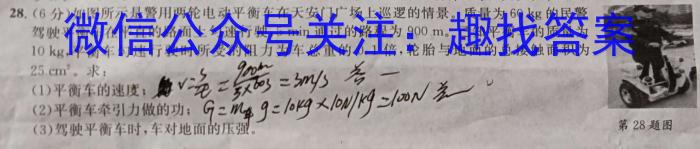 28.(6分)如图所示是警用两轮电动平衡车在天安门广场上巡逻的情景,质量为60 kg的民警
驾驶平衡车在 min通过的路程为900 m, 质量为
微信公众号关注:趣找答案
10 kg,平衡车 行驶时所受的阻力为 总重的 倍,轮胎与地面的总接触面积为
25 cm²。求:
(1)平衡车的速度; v=s/t=900m/5×60s=3m/s 答一
(2)平衡车牵引力做的功; G=m车g=10kg×10N/kg=100N
(3)驾驶平衡车时,车对地面的压强。
第28题图